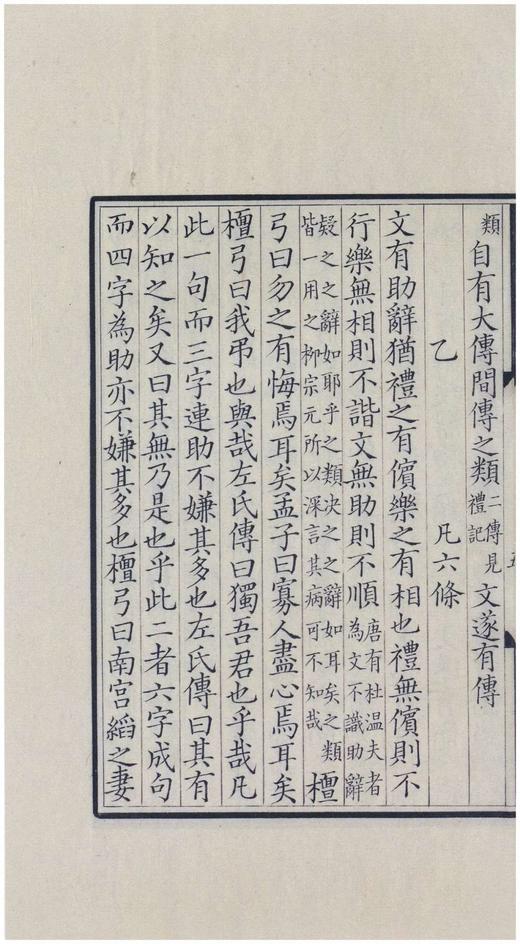 類自有大傳間傳之類二傳見禮記文遂有傳
乙 凡六條
文有助辭猶禮之有儐樂之有相也禮無儐則不
行樂無相則不諧文無助則不順唐有杜温夫者為文不識助辭
疑之之辭如耶乎之類决之之辭如耳矣之類皆一用之柳宗元所以深言其病可不知哉檀
弓曰勿之有悔焉耳矣孟子曰寡人盡心焉耳矣
檀弓曰我弔也與哉左氏傳曰獨吾君也乎哉凡
此一句而三字連助不嫌其多也左氏傳曰其有
以知之矣又曰其無乃是也乎此二者六字成句
而四字為助亦不嫌其多也檀弓曰南宮縚之妻